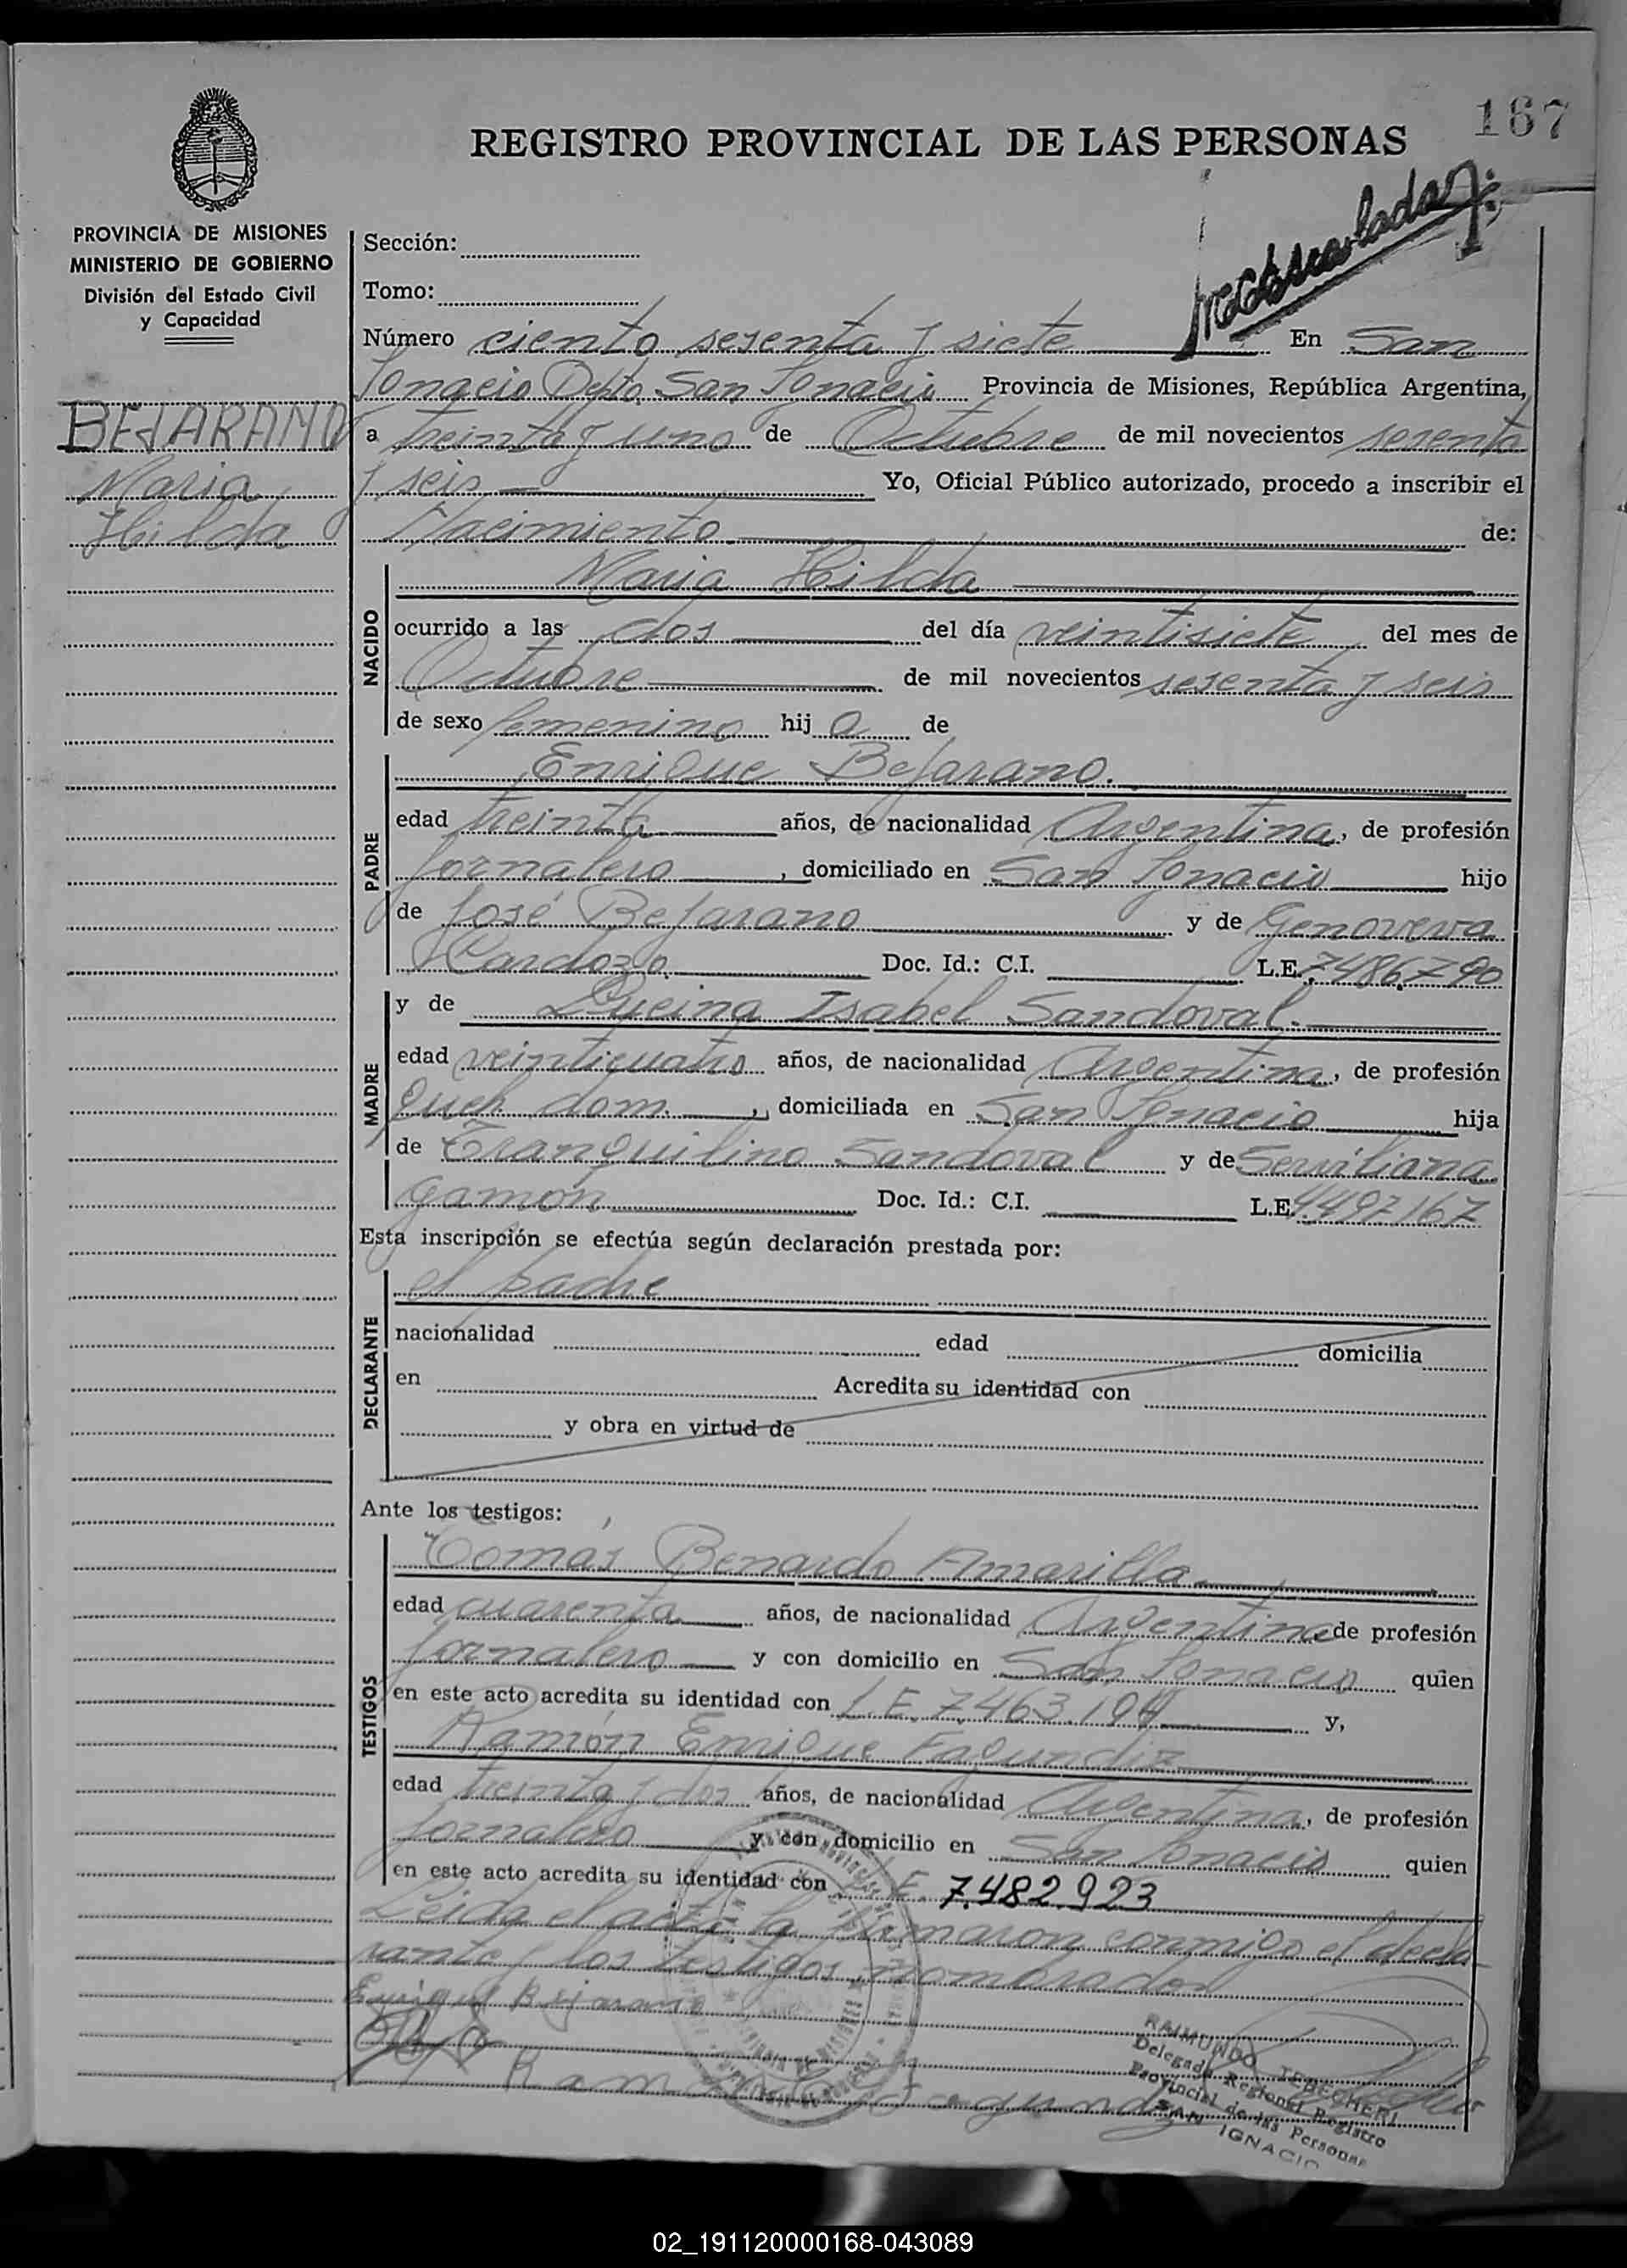 167
REGISTRO PROVINCIAL DE LAS PERSONAS
PROVINCIA DE MISIONES
MINISTERIO DE GOBIERNO
División del Estado Civil
y Capacidad
BEJARANO
Maria
Hilda
Sección:
Tomo:
Número ciento sesenta y siete En San
Ignacio Dpto. San Ignacio Provincia de Misiones, República Argentina,
a treinta y uno de Octubre de mil novecientos sesenta
y seis Yo, Oficial Público autorizado, procedo a inscribir el
Nacimiento de:
NACIDO
Maria Hilda
ocurrido a las dos del día veintisiete del mes de
Octubre de mil novecientos sesenta y seis
de sexo femenino hij a de
PADRE
Enrique Bejarano.
edad treinta años, de nacionalidad Argentina, de profesión
Jornalero, domiciliado en San Ignacio hijo
de José Bejarano y de Genoveva
Cardozo. Doc. Id.: C.I. L.E. 7486.790
MADRE
y de Lucina Isabel Sandoval.
edad veinticuatro años, de nacionalidad Argentina, de profesión
Queh. dom., domiciliada en San Ignacio hija
de Tranquilino Sandoval y de Serviliana
Gamón Doc. Id.: C.I. L.E. 4497167
Esta inscripción se efectúa según declaración prestada por:
DECLARANTE
el padre
nacionalidad edad domicilia
en Acredita su identidad con
y obra en virtud de
Ante los testigos:
TESTIGOS
Tomás Benardo Amarilla
edad cuarenta años, de nacionalidad Argentina de profesión
Jornalero y con domicilio en San Ignacio quien
en este acto acredita su identidad con L.E. 7.463.194 y,
Ramón Enrique Fagundiz
edad treinta y dos años, de nacionalidad Argentina, de profesión
Jornalero y con domicilio en San Ignacio quien
en este acto acredita su identidad con L.E. 7.482.923
Leida el acta la firmaron conmigo el decla-
rante y los testigos nombrados
Enrique Bejarano
RAIMUNDO TEBECHERI
Delegado Regional Registro
Provincial de las Personas
SAN IGNACIO
02_191120000168-043089